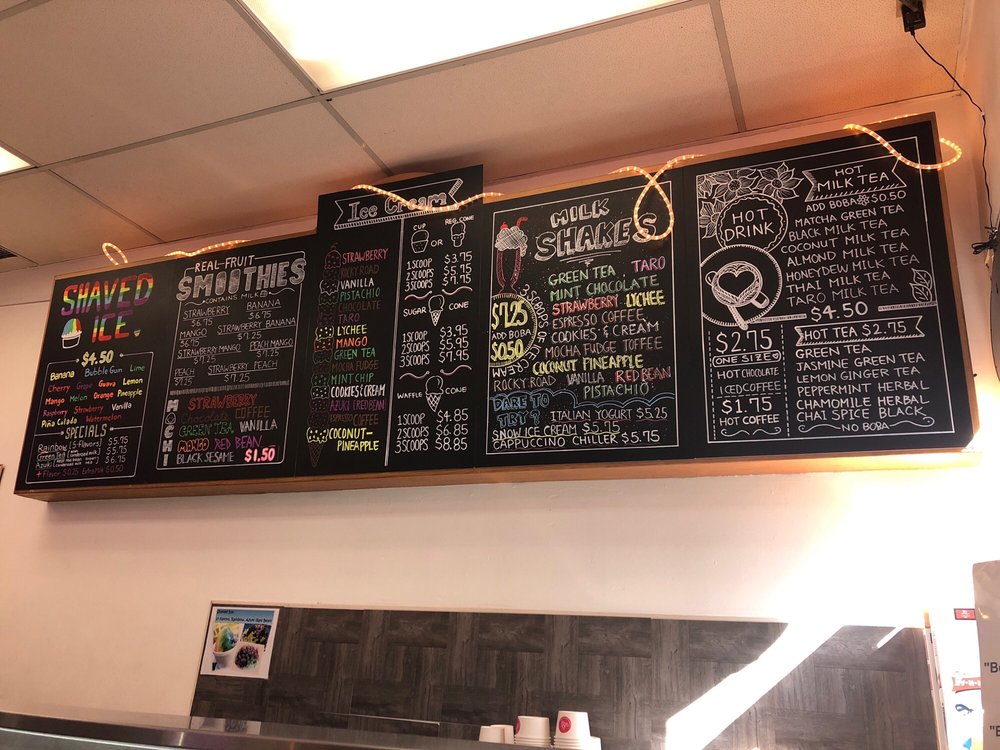 SHAVED
ICE
$4.50
Banana Bubble Gum Lime
Cherry Grape Guava Lemon
Mango Melon Orange Pineapple
Raspberry Strawberry Vanilla
Piña Colada Watermelon
SPECIALS
Rainbow [5-Flavors] $5.75
Green Tea $5.75
Azuki $6.75
+ Flavor $0.25 Extra Milk $0.50
REAL-FRUIT
SMOOTHIES
CONTAINS MILK
STRAWBERRY $6.75
BANANA $6.75
MANGO $6.75
STRAWBERRY BANANA $7.25
STRAWBERRY MANGO $7.25
PEACH MANGO $7.25
PEACH $7.25
STRAWBERRY PEACH $7.25
MOCHI
STRAWBERRY
COFFEE
GREEN TEA VANILLA
MANGO RED BEAN
BLACK SESAME $1.50
Ice Cream
STRAWBERRY
ROCKY ROAD
VANILLA
PISTACHIO
CHOCOLATE
TARO
LYCHEE
MANGO
GREEN TEA
MOCHA FUDGE
MINT CHIP
COOKIES & CREAM
AZUKI REDBEAN
ESPRESSO COFFEE
COCONUT-
PINEAPPLE
CUP OR REG. CONE
1 SCOOP $3.75
2 SCOOPS $5.75
3 SCOOPS $7.75
SUGAR CONE
1 SCOOP $3.95
2 SCOOPS $5.95
3 SCOOPS $7.95
WAFFLE CONE
1 SCOOP $4.85
2 SCOOPS $6.85
3 SCOOPS $8.85
MILK
SHAKES
3 SCOOPS OF ICE CREAM
$7.25
ADD BOBA
$0.50
GREEN TEA TARO
MINT CHOCOLATE
STRAWBERRY LYCHEE
ESPRESSO COFFEE
COOKIES & CREAM
MOCHA FUDGE TOFFEE
COCONUT PINEAPPLE
ROCKY ROAD VANILLA RED BEAN
PISTACHIO
DARE TO
TRY?
ITALIAN YOGURT $5.25
SNOW ICE CREAM $5.75
CAPPUCCINO CHILLER $5.75
HOT
DRINK
$2.75
ONE SIZE
HOT CHOCOLATE
ICED COFFEE
$1.75
HOT COFFEE
HOT
MILK TEA
ADD BOBA $0.50
MATCHA GREEN TEA
BLACK MILK TEA
COCONUT MILK TEA
ALMOND MILK TEA
HONEYDEW MILK TEA
THAI MILK TEA
TARO MILK TEA
$4.50
HOT TEA $2.75
GREEN TEA
JASMINE GREEN TEA
LEMON GINGER TEA
PEPPERMINT HERBAL
CHAMOMILE HERBAL
CHAI SPICE BLACK
NO BOBA